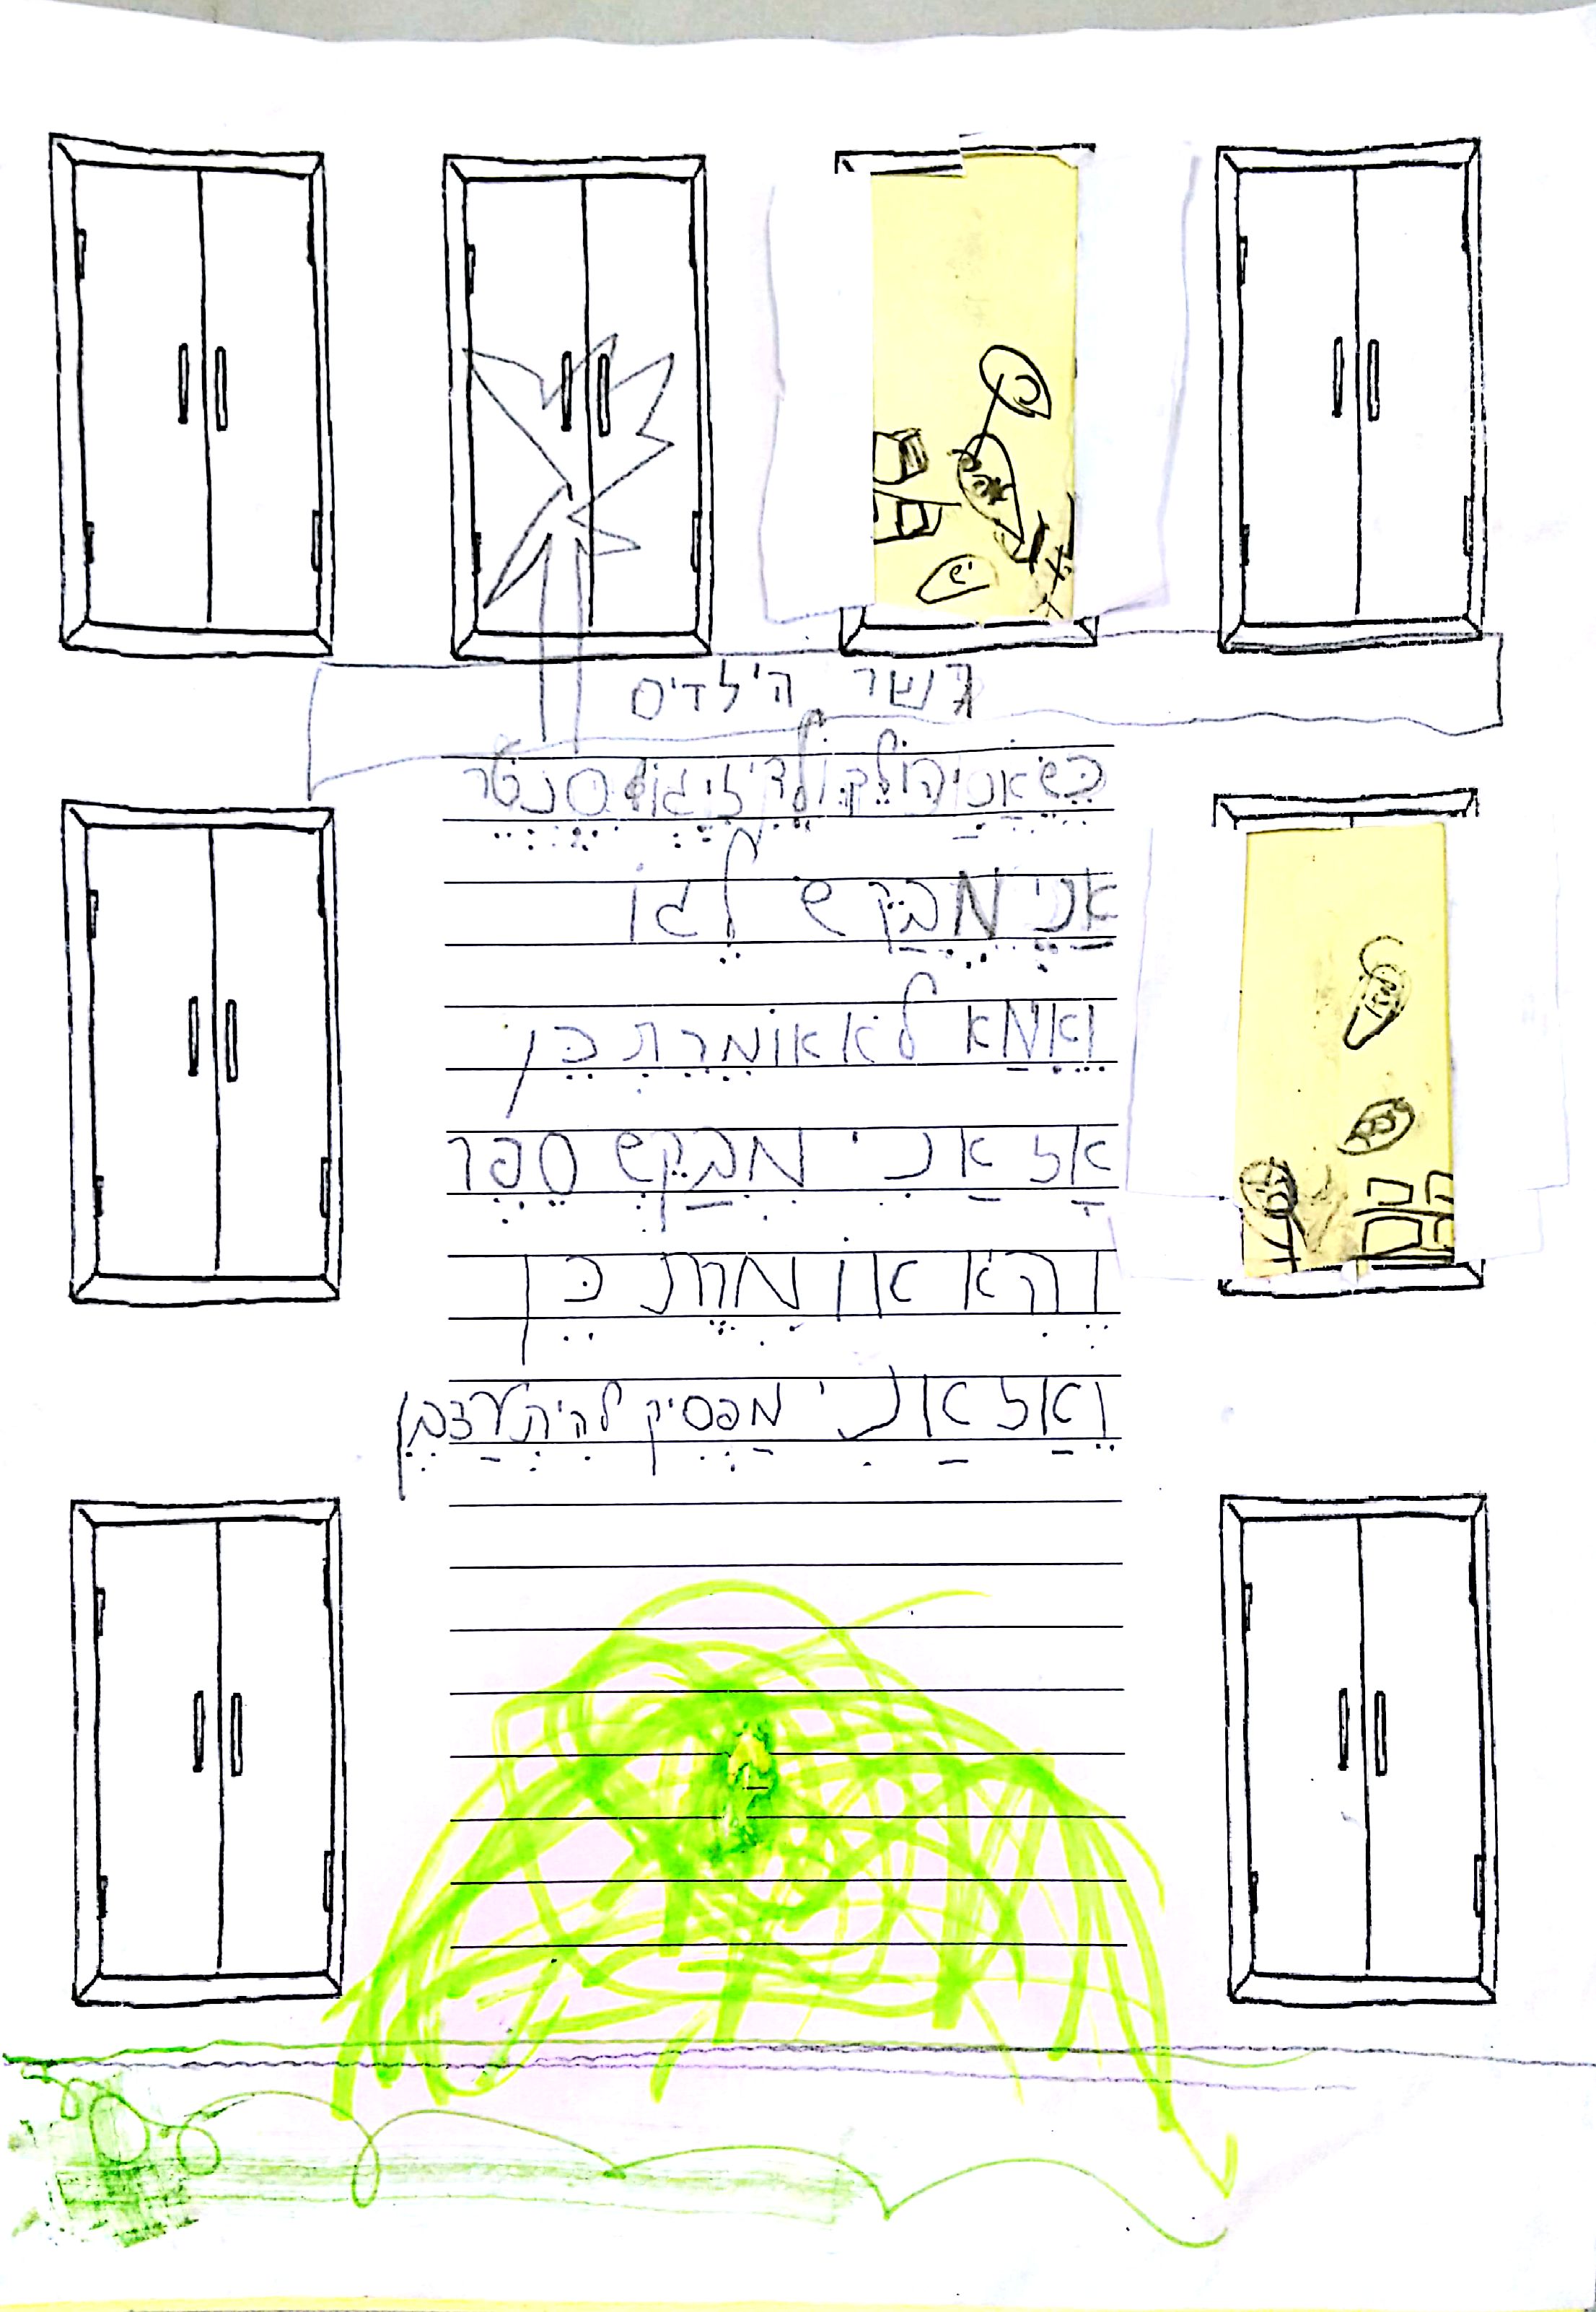 גשר הילדים
כשאני הולך לדיזיגוף סנטר
אני מבקש לגו
ואמא לא אומרת כן
אז אני מבקש ספר
והא אומרת כן
ואז אני מפסיק להיתעצבן